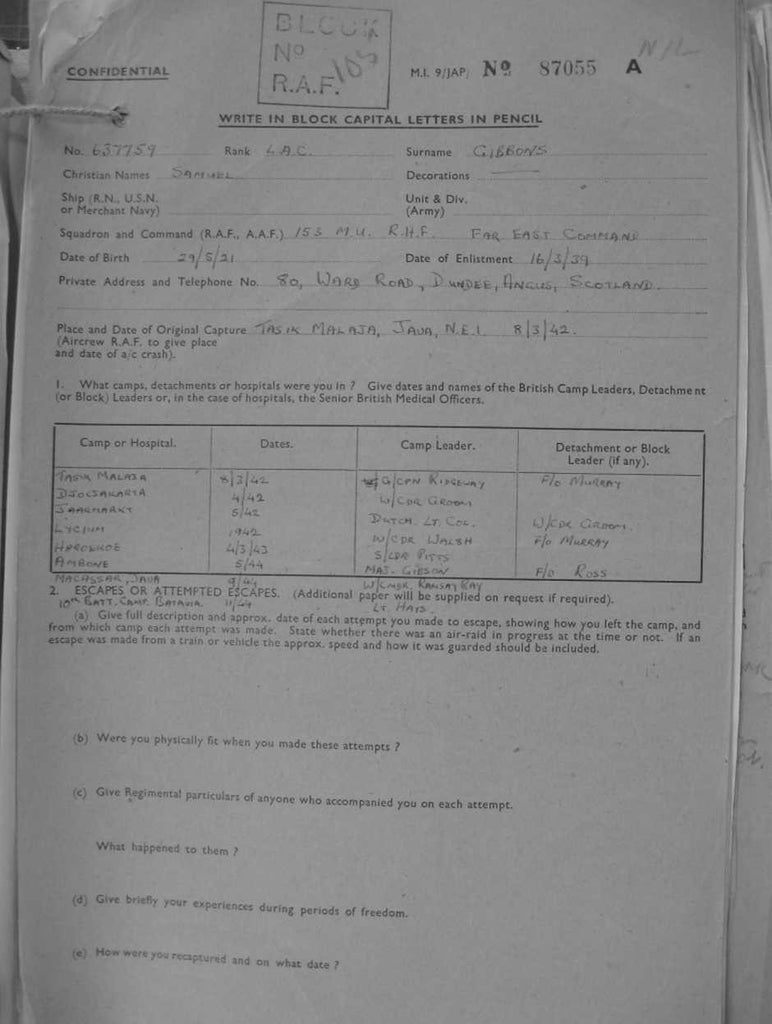 BLOCK
No 109
R.A.F.
CONFIDENTIAL
M.I. 9/JAP/ No 87055 A
WRITE IN BLOCK CAPITAL LETTERS IN PENCIL
No. 637759 Rank L.A.C. Surname GIBBONS
Christian Names SAMUEL Decorations
Ship (R.N., U.S.N. or Merchant Navy) Unit & Div. (Army)
Squadron and Command (R.A.F., A.A.F.) 153 M.U. R.H.F. FAR EAST COMMAND
Date of Birth 29/5/21 Date of Enlistment 16/3/39
Private Address and Telephone No. 80, WARD ROAD, DUNDEE, ANGUS, SCOTLAND.
Place and Date of Original Capture TASIK MALAJA, JAVA, N.E.I. 8/3/42.
(Aircrew R.A.F. to give place
and date of a/c crash).
1. What camps, detachments or hospitals were you in ? Give dates and names of the British Camp Leaders, Detachment
(or Block) Leaders or, in the case of hospitals, the Senior British Medical Officers.
Camp or Hospital. Dates. Camp Leader. Detachment or Block Leader (if any).
TASIK MALAJA 8/3/42 G/CPN RIDGEWAY F/O MURRAY
DJOCJAKARTA 4/42 W/CDR GROOM
JAARMARKT 5/42 DUTCH LT. COL. W/CDR GROOM.
LYCIUM 1942 W/CDR WALSH F/O MURRAY
HAROEKOE 4/3/43 S/LDR PITTS
AMBONE 5/44 MAJ. GIBSON F/O ROSS
MACASSAR, JAVA 9/44 W/CMDR. RAMSAY RAY
2. ESCAPES OR ATTEMPTED ESCAPES. (Additional paper will be supplied on request if required).
10th BATT. CAMP. BATAVIA 11/44 LT. HAYS.
(a) Give full description and approx. date of each attempt you made to escape, showing how you left the camp, and
from which camp each attempt was made. State whether there was an air-raid in progress at the time or not. If an
escape was made from a train or vehicle the approx. speed and how it was guarded should be included.
(b) Were you physically fit when you made these attempts ?
(c) Give Regimental particulars of anyone who accompanied you on each attempt.
What happened to them ?
(d) Give briefly your experiences during periods of freedom.
(e) How were you recaptured and on what date ?